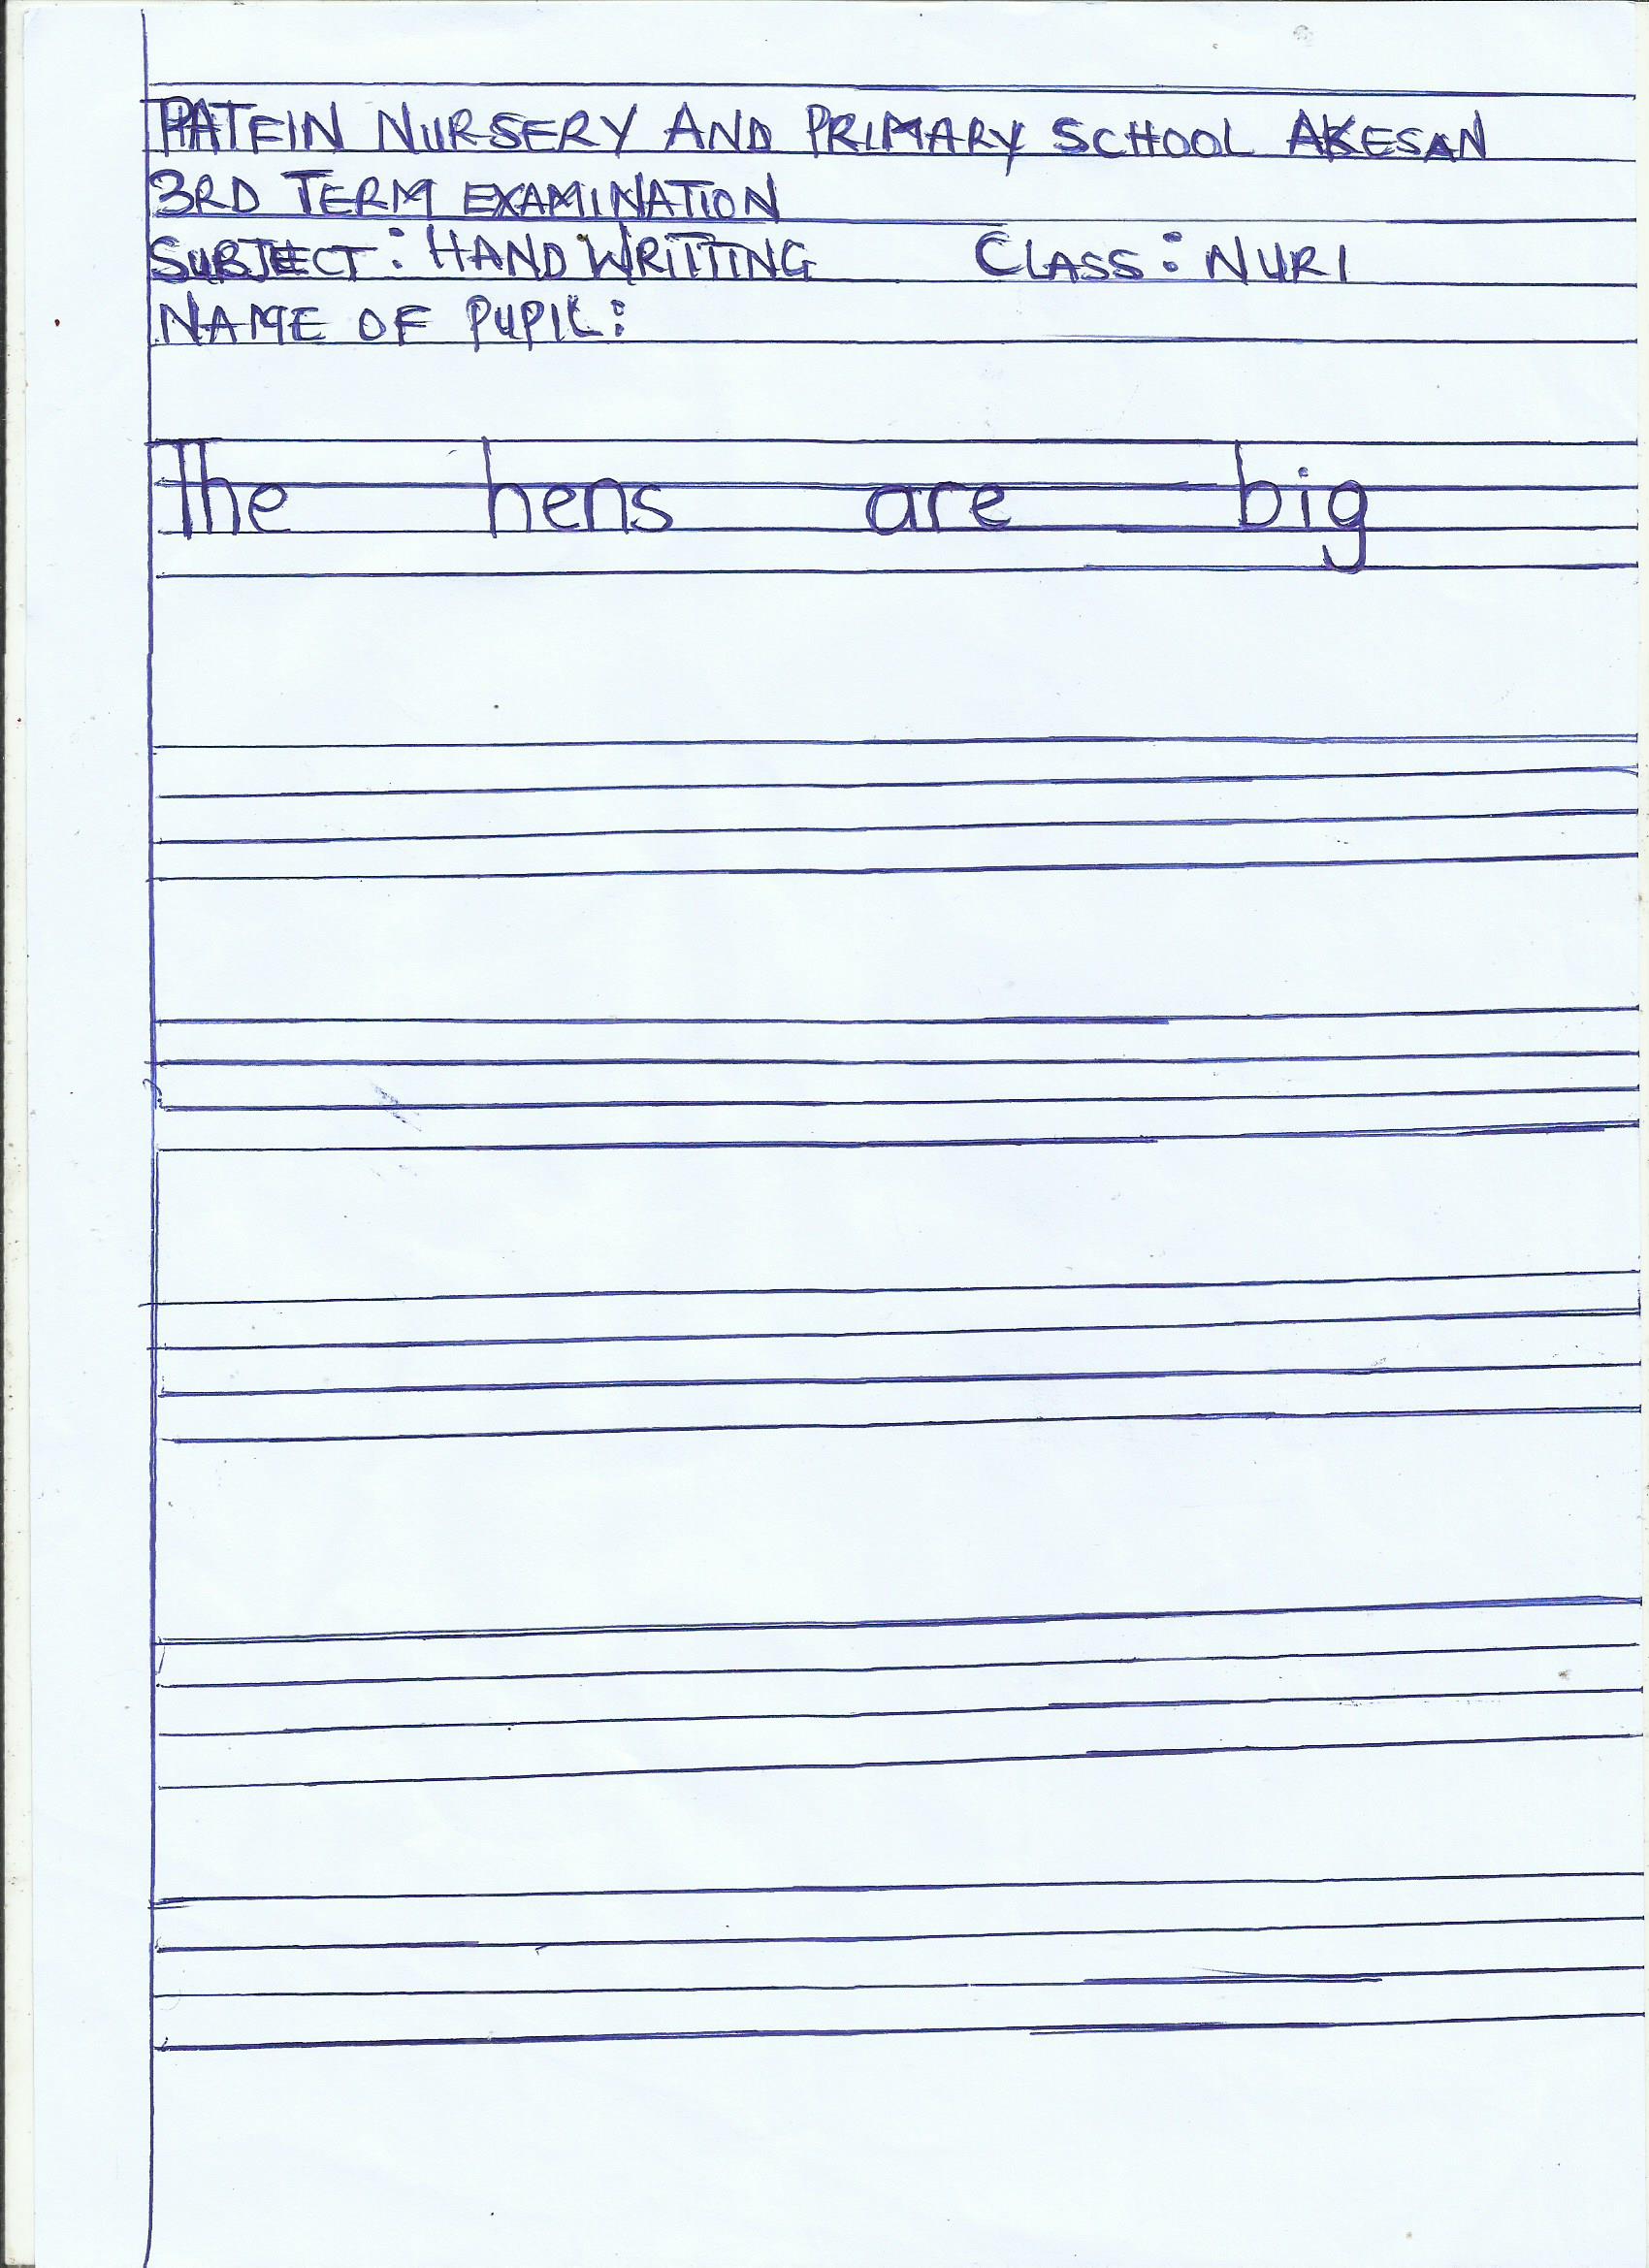 PATFIN NURSERY AND PRIMARY SCHOOL AKESAN
3RD TERM EXAMINATION
SUBJECT: HAND WRITTING CLASS: NUR1
NAME OF PUPIL:
The hens are big